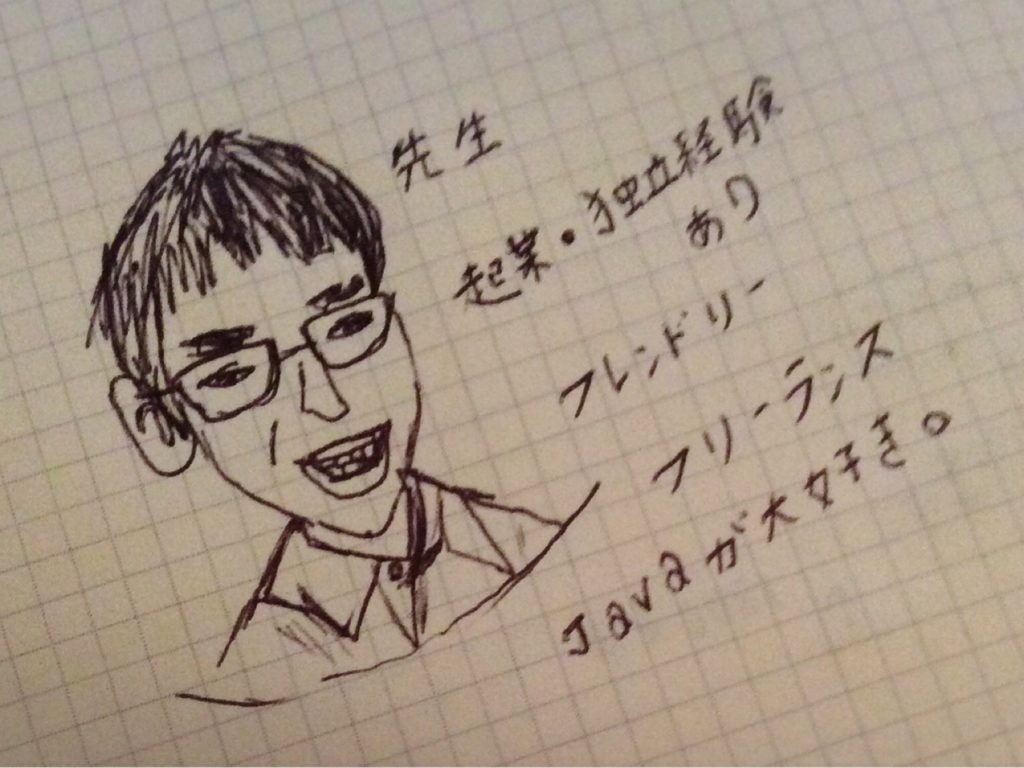 先生
起業・独立経験
あり
フレンドリー
フリーランス
Javaが大好き。